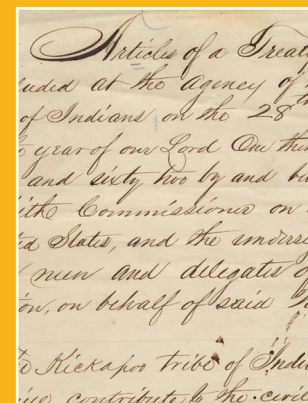 Articles of a Treat
luded at the agency of
of Indians on the 28
year of our Lord One thou
and sixty two by and
Commissioner on
ed States, and the unders
men and delegates o
on, on behalf of said
Kickapoo tribe of Indi
contribute to the civi